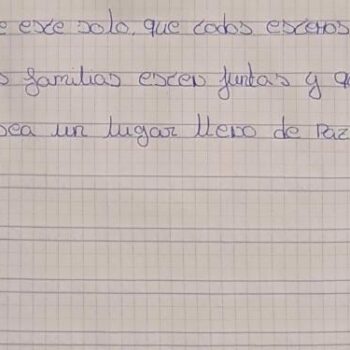 e este solo, que todos estemos
s familias esten juntas y q
sea un lugar lleno de Paz